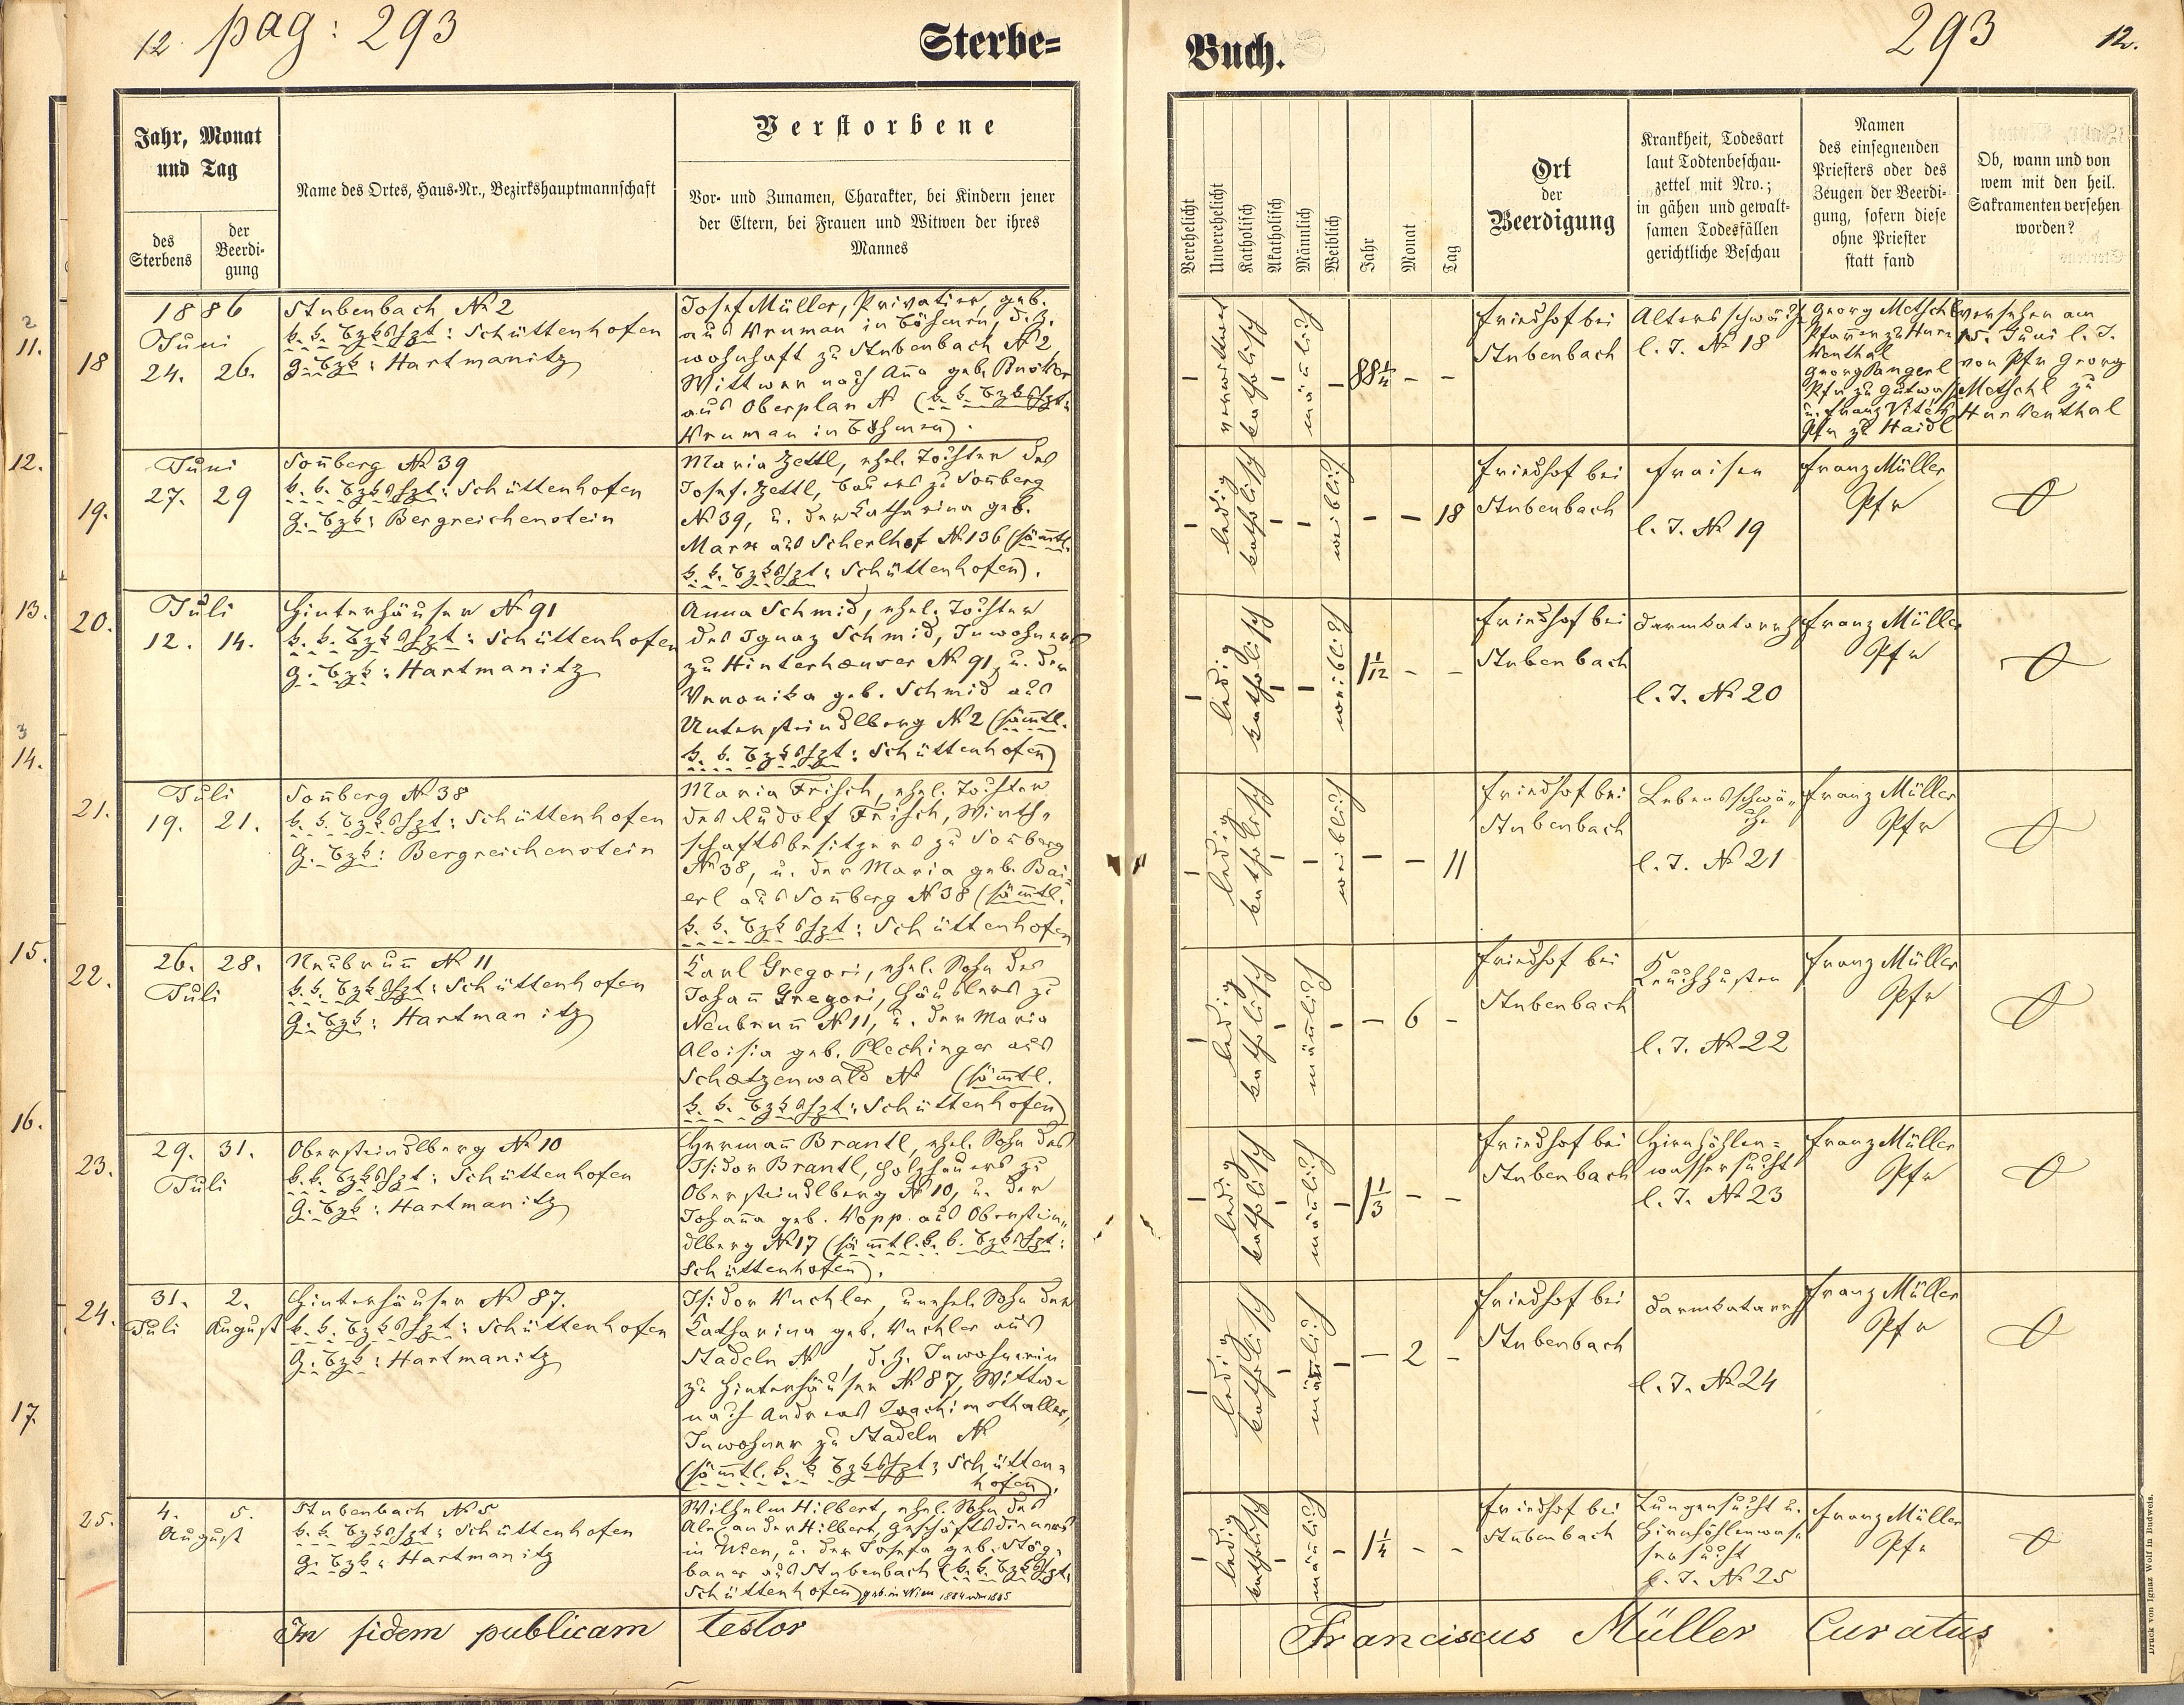 12 pag: 293
Sterbe=
Jahr, Monat
und Tag
des
Sterbens
der
Beerdi-
gung
Name des Ortes, Haus-Nr., Bezirkshauptmannschaft
Verstorbene
Vor- und Zunamen, Charakter, bei Kindern jener
der Eltern, bei Frauen und Witwen der ihres
Mannes
2
11.
12.
13.
3
14.
15.
16.
17.
18
1886
Juni
24. 26.
Stubenbach, No 2
k. k. Bzkshpt: Schüttenhofen
G. Bzk: Hartmanitz
Josef Müller, Privatier, geb.
aus Krumau in Böhmen, d. z.
wohnhaft zu Stubenbach No 2
Wittwer nach Anna geb.
aus Oberplan No (k. k. Bzkshpt:
Krumau in Böhmen).
19.
Juni
27. 29
Soñberg No 39
k. k. Bzkshpt: Schüttenhofen
G. Bzk: Bergreichenstein
Maria Zettl, ehel. Tochter des
Josef Zettl, Bauers zu Soñberg
No 39, u. der Katharina geb.
Marx aus Scherlhof No 136 (sämtl.
k. k. Bzkshpt: Schüttenhofen).
20.
Juli
12. 14.
Hinterhäuser No 91
k. k. Bzkshpt: Schüttenhofen
G. Bzk: Hartmanitz
Anna Schmid, ehel. Tochter
des Ignaz Schmid, Inwohners
zu Hinterhæuser No 91, u. der
Veronika geb. Schmid aus
Untersteindlberg No 2 (sämtl.
k. k. Bzkshpt: Schüttenhofen)
21.
Juli
19. 21.
Soñberg No 38
k. k. Bzkshpt: Schüttenhofen
G. Bzk: Bergreichenstein
Maria Frisch, ehel. Tochter
des Rudolf Frisch, Wirth-
schaftsbesitzers zu Soñberg
No 38, u. der Maria geb. Bai-
erl aus Soñberg No 38 (sämtl.
k. k. Bzkshpt: Schüttenhofen
22.
26. 28.
Juli
Neubruñ No 11
k. k. Bzkshpt: Schüttenhofen
G. Bzk: Hartmanitz
Karl Gregori, ehel. Sohn des
Johañ Gregori, Häuslers zu
Neubruñ No 11, u. der Maria
Aloisia geb. Plechinger aus
Schætzenwald No (sämtl.
k. k. Bzkshpt: Schüttenhofen)
23.
29. 31.
Juli
Obersteindlberg No 10
k. k. Bzkshpt: Schüttenhofen
G. Bzk: Hartmanitz
Hermañ Brantl, ehel. Sohn des
Isidor Brantl, Holzhauers zu
Obersteindlberg No 10, u. der
Johaña geb. Kopp aus Oberstein-
dlberg No 17 (sämtl. k. k. Bzkshpt:
Schüttenhofen).
24.
31. 2.
Juli August
Hinterhäuser No 87.
k. k. Bzkshpt: Schüttenhofen
G. Bzk: Hartmanitz
Isidor Kuchler, unehel. Sohn der
Katharina geb. Kuchler aus
Stadeln No , d. z. Inwohnerin
zu Hinterhäuser No 87, Wittwe
nach Andreas Joachimsthaller,
Inwohner zu Stadeln No
(sämtl. k. k. Bzkshpt: Schütten-
hofen).
25.
4. 5.
August
Stubenbach No 5
k. k. Bzkshpt: Schüttenhofen
G. Bzk: Hartmanitz
Wilhelm Hilbert, ehel. Sohn des
Alexander Hilbert, Geschäftsdieners
in Wien, u. der Josefa geb. Stög-
bauer aus Stubenbach (k. k. Bzkshpt:
Schüttenhofen) geb. in Wien
In fidem publicam testor
Buch.
293 12.
Verehelicht
Unverehelicht
Katholisch
Akatholisch
Männlich
Weiblich
Jahr
Monat
Tag
Ort
der
Beerdigung
Krankheit, Todesart
laut Todtenbeschau-
zettel mit Nro.;
in gähen und gewalt-
samen Todesfällen
gerichtliche Beschau
Namen
des einsegnenden
Priesters oder des
Zeugen der Beerdi-
gung, sofern diese
ohne Priester
statt fand
Ob, wann und von
wem mit den heil.
Sakramenten versehen
worden?
- verwittwet katholisch - mänlich - 88 1/4 - -
Friedhof bei
Stubenbach
Altersschwäche
l. J. No 18
Georg Metschl
Pfarrer zu Hur-
kenthal
Georg Pangerl
Pfr zu Gutwasser
u. Franz Viték
Pfr zu Haidl
versehen am
15. Juni l. J.
von Pfr Georg
Metschl zu
Hurkenthal
- ledig katholisch - - weiblich - - 18
Friedhof bei
Stubenbach
Fraisen
l. J. No 19
Franz Müller
Pfr
- ledig katholisch - - weiblich 1 1/12 - -
Friedhof bei
Stubenbach
Darmkatarrh
l. J. No 20
Franz Müller
Pfr
- ledig katholisch - - weiblich - - 11
Friedhof bei
Stubenbach
Lebensschwä-
che
l. J. No 21
Franz Müller
Pfr
- ledig katholisch - mänlich - - 6 -
Friedhof bei
Stubenbach
Keuchhusten
l. J. No 22
Franz Müller
Pfr
- ledig katholisch - mänlich - 1 1/3 - -
Friedhof bei
Stubenbach
Hirnhöhlen=
wassersucht
l. J. No 23
Franz Müller
Pfr
- ledig katholisch - mänlich - - 2 -
Friedhof bei
Stubenbach
Darmkatarrh
l. J. No 24
Franz Müller
Pfr
- ledig katholisch - mänlich - 1 1/4 - -
Friedhof bei
Stubenbach
Lungensucht u.
Hirnhöhlenwas-
sersucht
l. J. No 25
Franz Müller
Pfr
Franciscus Müller Curatus
Druck von Ignaz Wolf in Budweis.